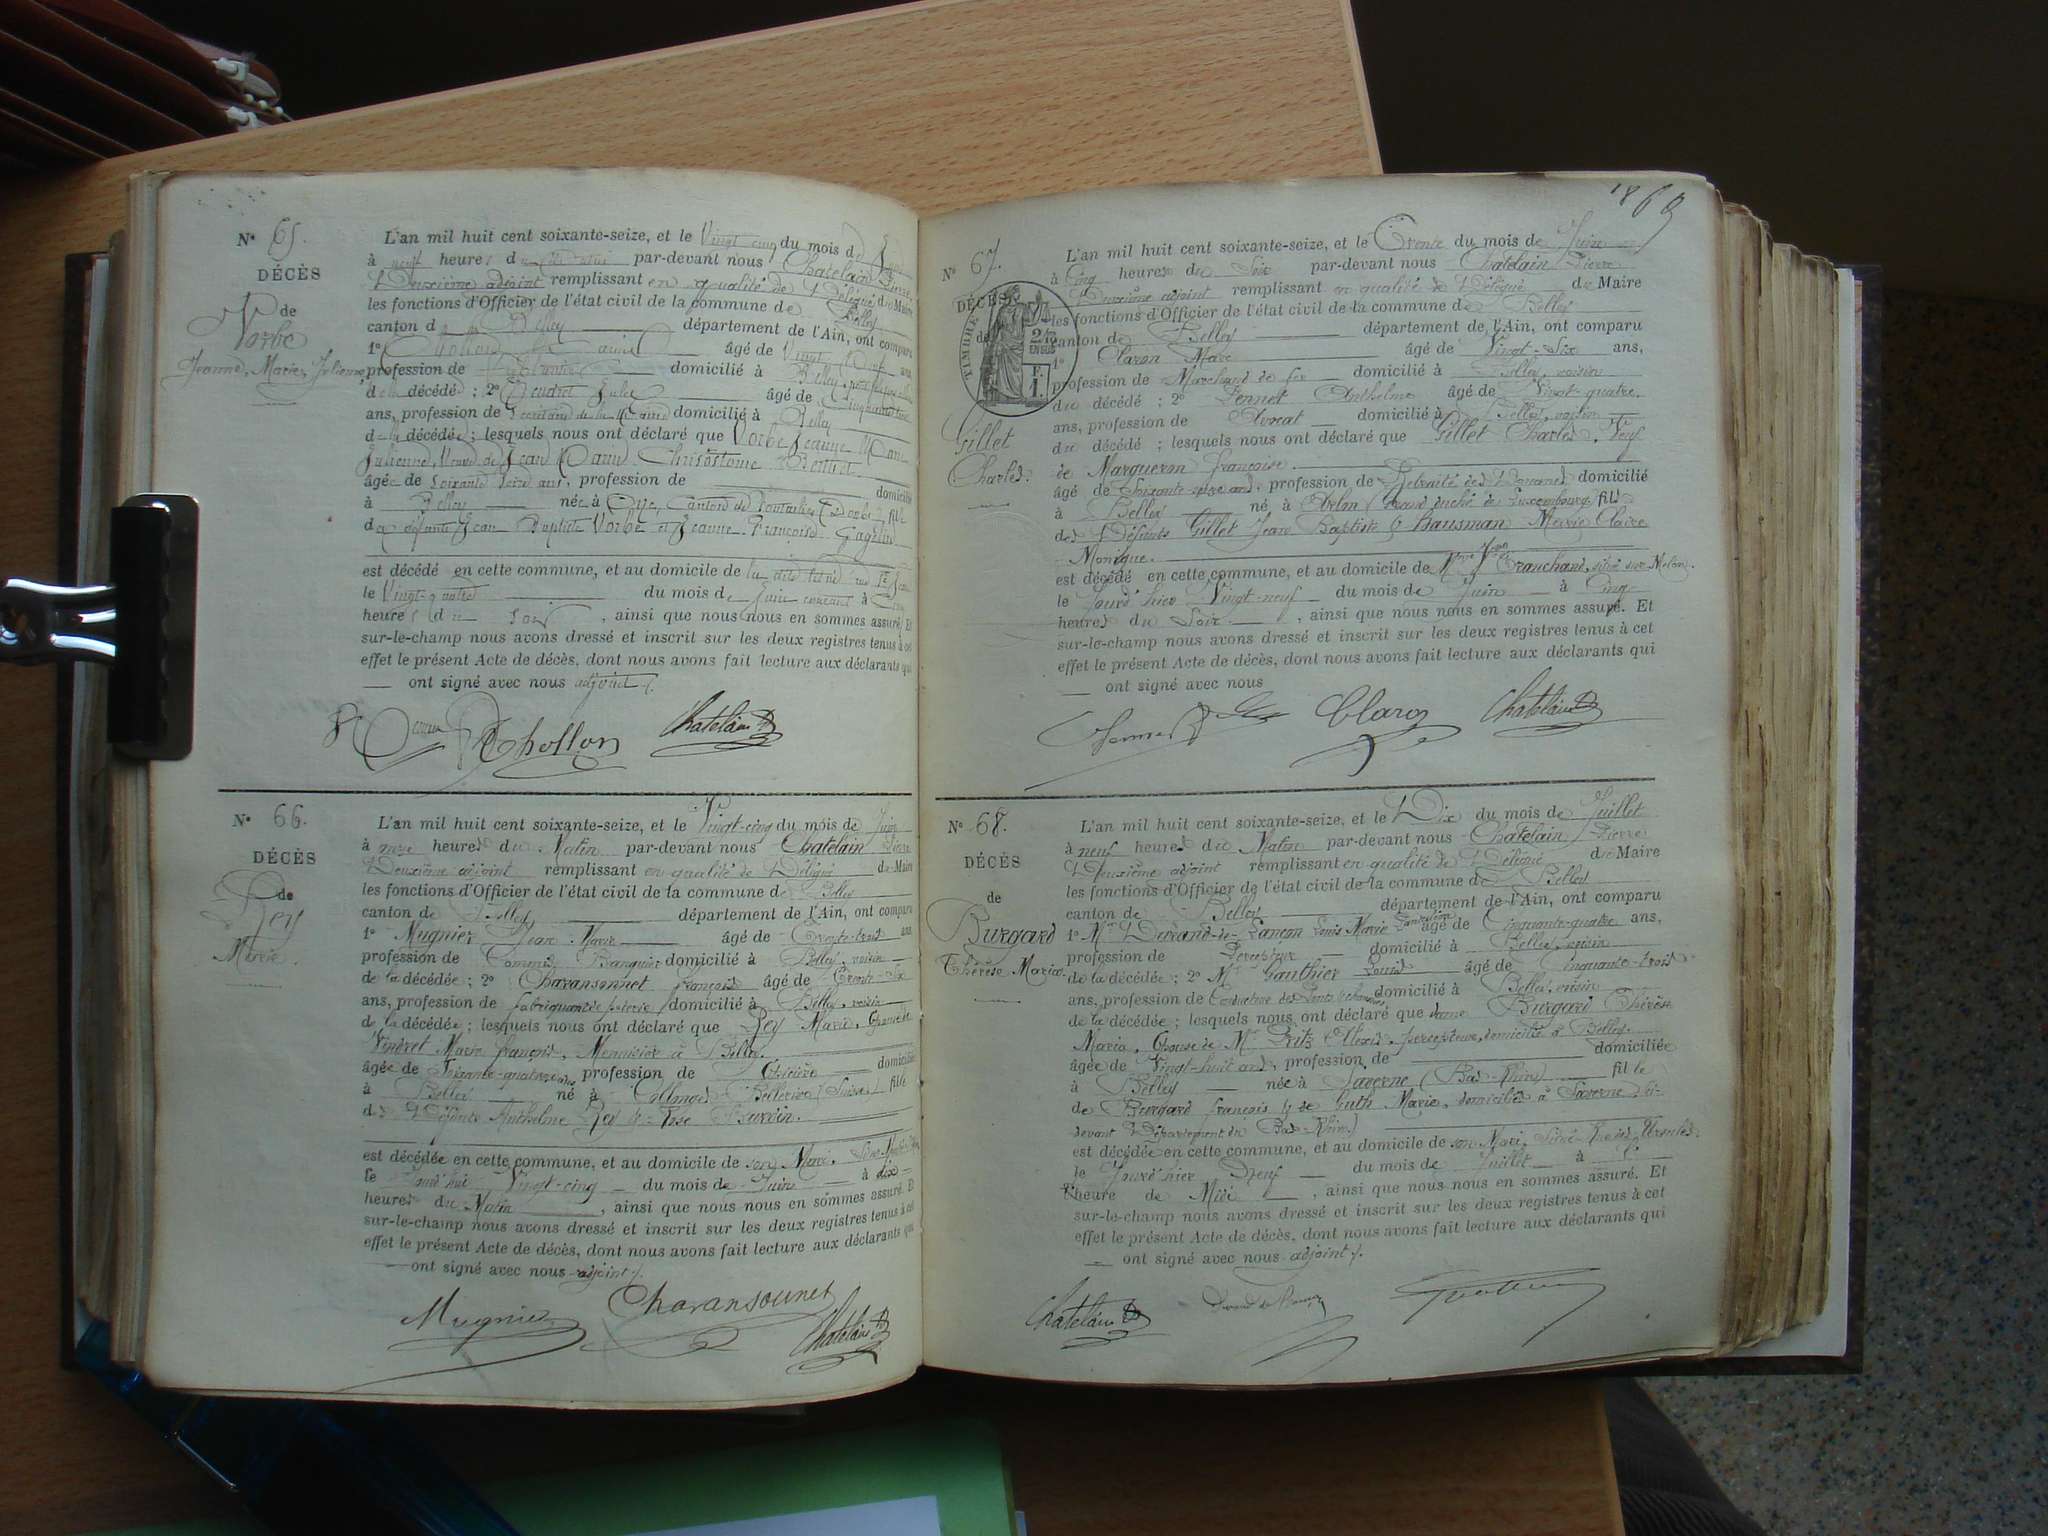 N° 65.
DÉCÈS
de
Vorbe
Jeanne, Marie, Julienne
L'an mil huit cent soixante-seize, et le Vingt cinq du mois de
à neuf heures du par-devant nous Chatelain Pierre
Deuxième adjoint remplissant en qualité de Délégué du Maire
les fonctions d'Officier de l'état civil de la commune de Belley
canton de Belley département de l'Ain, ont comparu
1° âgé de Vingt ans,
profession de domicilié à Belley,
de la décédée ; 2° Jules âgé de
ans, profession de Secrétaire de la Mairie domicilié à Belley
de la décédée ; lesquels nous ont déclaré que Vorbe Jeanne Marie
Julienne, Veuve de Jean Chrisostome
âgée de soixante seize ans, profession de domicilié
à Belley née à Oye, Canton de Pontarlier (Doubs) fille
des défunts Jean Baptiste Vorbe et Jeanne Françoise
est décédé en cette commune, et au domicile de
le Vingt-quatre du mois de Juin courant à Cinq
heures du Soir, ainsi que nous nous en sommes assuré. Et
sur-le-champ nous avons dressé et inscrit sur les deux registres tenus à cet
effet le présent Acte de décès, dont nous avons fait lecture aux déclarants qui
ont signé avec nous adjoint
Chollon Chatelain
N° 66.
DÉCÈS
de
Rey
Marie.
L'an mil huit cent soixante-seize, et le Vingt-cinq du mois de Juin
à onze heures du Matin par-devant nous Chatelain Pierre
Deuxième adjoint remplissant en qualité de Délégué du Maire
les fonctions d'Officier de l'état civil de la commune de Belley
canton de Belley département de l'Ain, ont comparu
1° Mugnier Jean Marie âgé de Trente-trois ans
profession de Commis Banquier domicilié à Belley, voisin
de la décédée ; 2° Charansonnet François âgé de Trente-Six
ans, profession de fabriquant de domicilié à Belley, voisin
de la décédée ; lesquels nous ont déclaré que Rey Marie, Epouse de
Vindret Marie François, Menuisier à Belley.
âgée de Soixante-quatre ans profession de domiciliée
à Belley né à Collonges Bellerive (Suisse) fille
des Défunts Anthelme Rey &
est décédée en cette commune, et au domicile de son Mari,
le Jourd'hui Vingt-cinq du mois de Juin à dix
heures du Matin, ainsi que nous nous en sommes assuré. Et
sur-le-champ nous avons dressé et inscrit sur les deux registres tenus à cet
effet le présent Acte de décès, dont nous avons fait lecture aux déclarants qui
ont signé avec nous adjoint
Mugnier Charansonnet Chatelain
N° 67.
DÉCÈS
de
TIMBRE
2/10
EN SUS
F.
1.
Gillet
Charles.
L'an mil huit cent soixante-seize, et le Trente du mois de Juin
à Cinq heures du Soir par-devant nous Chatelain Pierre
Deuxième adjoint remplissant en qualité de Délégué du Maire
les fonctions d'Officier de l'état civil de la commune de Belley
canton de Belley département de l'Ain, ont comparu
1° Claron Marc âgé de Vingt-Six ans,
profession de Marchand de fer domicilié à Belley, voisin
du décédé ; 2° Anthelme âgé de Vingt-quatre
ans, profession de Avocat domicilié à Belley, voisin
du décédé ; lesquels nous ont déclaré que Gillet Charles, Veuf
de Margueron françoise.
âgé de Soixante-seize ans, profession de Retraité des Douanes domicilié
à Belley né à Arlon (Grand duché de Luxembourg) fils
des Défunts Gillet Jean Baptiste & Hausman Marie Claire
Monique.
est décédé en cette commune, et au domicile de Tranchand,
le Jourd'hier Vingt-neuf du mois de Juin à Cinq
heures du Soir, ainsi que nous nous en sommes assuré. Et
sur-le-champ nous avons dressé et inscrit sur les deux registres tenus à cet
effet le présent Acte de décès, dont nous avons fait lecture aux déclarants qui
ont signé avec nous
Claron Chatelain
N° 68.
DÉCÈS
de
Burgard
Thérèse Maria
L'an mil huit cent soixante-seize, et le Dix du mois de Juillet
à neuf heures du Matin par-devant nous Chatelain Pierre
Deuxième adjoint remplissant en qualité de Délégué du Maire
les fonctions d'Officier de l'état civil de la commune de Belley
canton de Belley département de l'Ain, ont comparu
1° Mr Durand-de-Lançon Louis Marie âgé de Cinquante-quatre ans,
profession de Percepteur domicilié à Belley, voisin
de la décédée ; 2° Mr Gauthier Louis âgé de Cinquante-trois
ans, profession de Conducteur des Ponts & chaussées domicilié à Belley, voisin
de la décédée ; lesquels nous ont déclaré que dame Burgard Thérèse
Maria, Epouse de Mr Pritz Alexis, percepteur, domicilié à Belley.
âgée de Vingt-huit ans, profession de domiciliée
à Belley née à Saverne (Bas-Rhin) fille
de Burgard françois & de Guth Marie, domiciliés à Saverne, ci-
devant Département du Bas-Rhin)
est décédée en cette commune, et au domicile de son Mari, Situé Rue des Ursules
le Jourd'hier Neuf du mois de Juillet à
heure de Midi, ainsi que nous nous en sommes assuré. Et
sur-le-champ nous avons dressé et inscrit sur les deux registres tenus à cet
effet le présent Acte de décès, dont nous avons fait lecture aux déclarants qui
ont signé avec nous adjoint
Chatelain